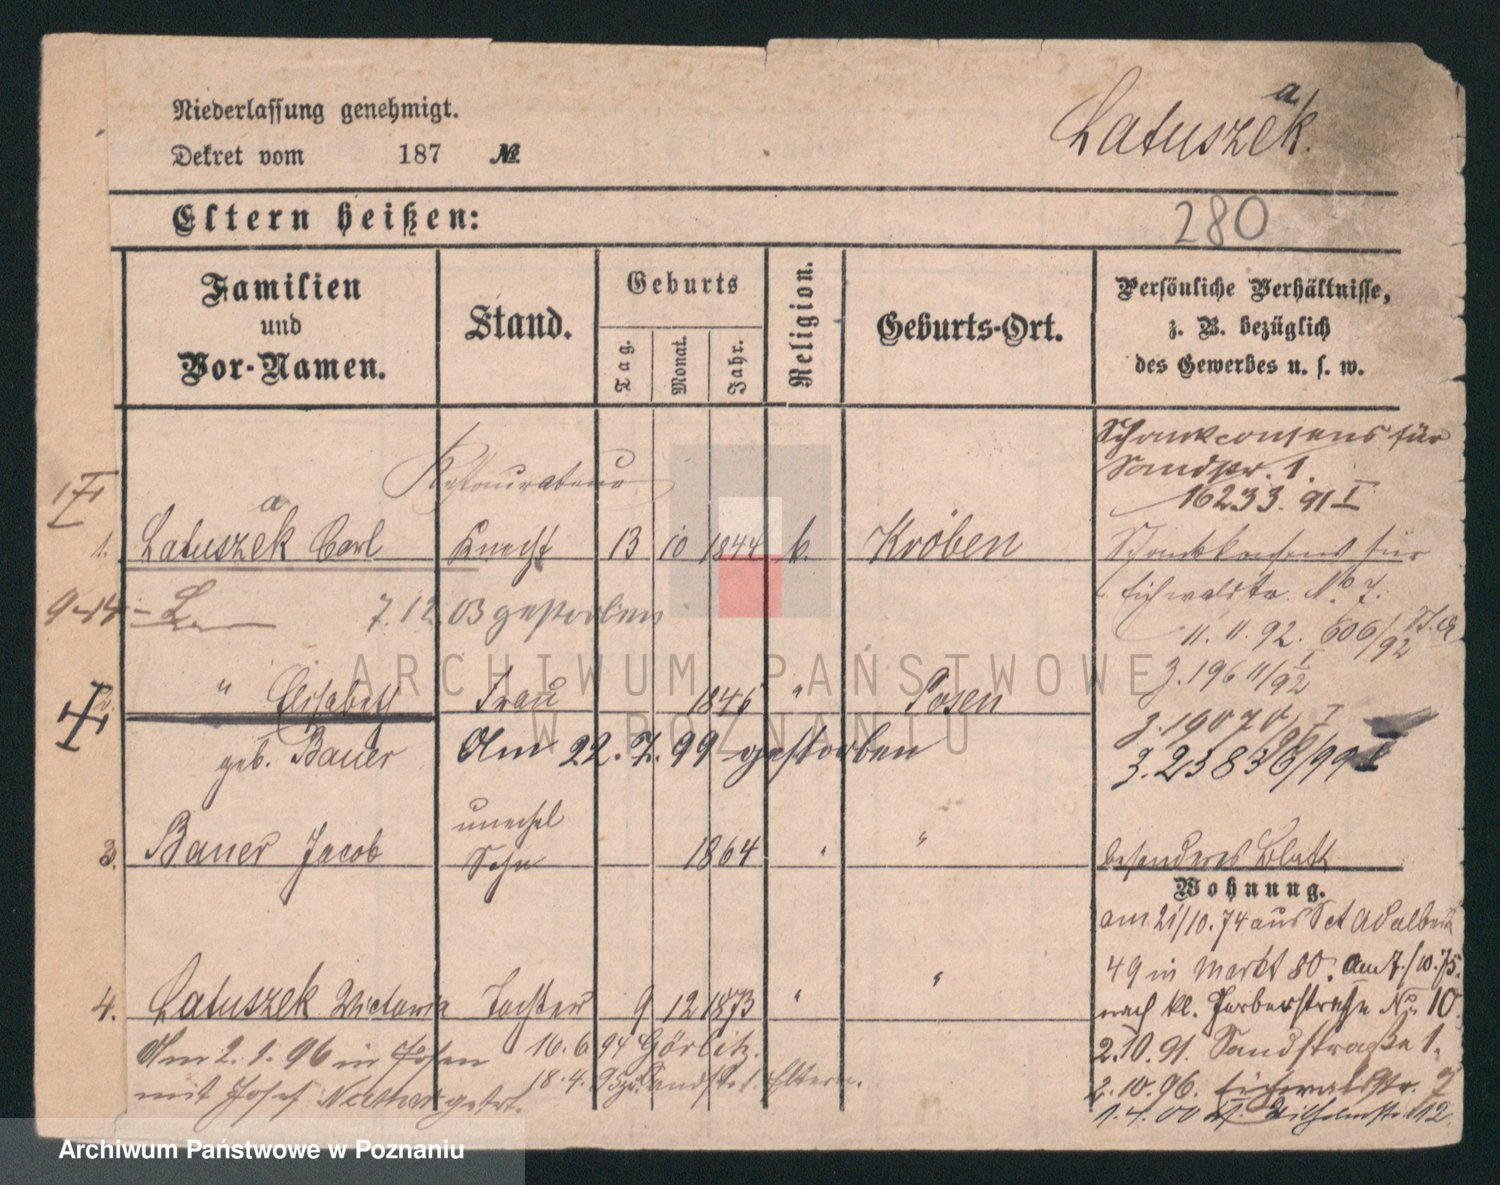 Niederlassung genehmigt.
Dekret vom 187 №
Latuszek.
a
Eltern heißen:
280
Familien und Vor-Namen.
Stand.
Geburts
Tag.
Monat.
Jahr.
Religion.
Geburts-Ort.
Persönliche Verhältnisse,
z. B. bezüglich
des Gewerbes u. s. w.
Restaurateur
a
1. Latuszek Carl Knecht 13 10 1844 k. Kröben
9-14
7.12 03 gestorben
Schankconsens für
Sandstr. 1.
16233. 91 I
Schankkonsens für
Eichwaldstr. No 7.
11. 11. 92. 606/92
J. 19611/92 I
J. 19070/96 I
J. 23836/99 I
2. " Elisabeth Frau 1846 " Posen
geb. Bauer Am 22. 7. 99 gestorben
3. Bauer Jacob unehel Sohn 1864 " "
besonderes Blatt
Wohnung.
am 21/10.74 aus Sct Adalbert
49 in Markt 80. am 7./10.75.
nach kl. Gerberstraße No 10.
2.10.91. Sandstraße 1.
2.10.96. Eichwaldstr. 7
1.4.00 Wilhelmstr 12
4. Latuszek Victoria Tochter 9 12 1873 " "
Am 2.1.96 in Posen 16.6 94 Görlitz.
mit Josef getr. 18.4.95 zu. Sandstr 1. Eltern.
ARCHIWUM PAŃSTWOWE
W POZNANIU
Archiwum Państwowe w Poznaniu